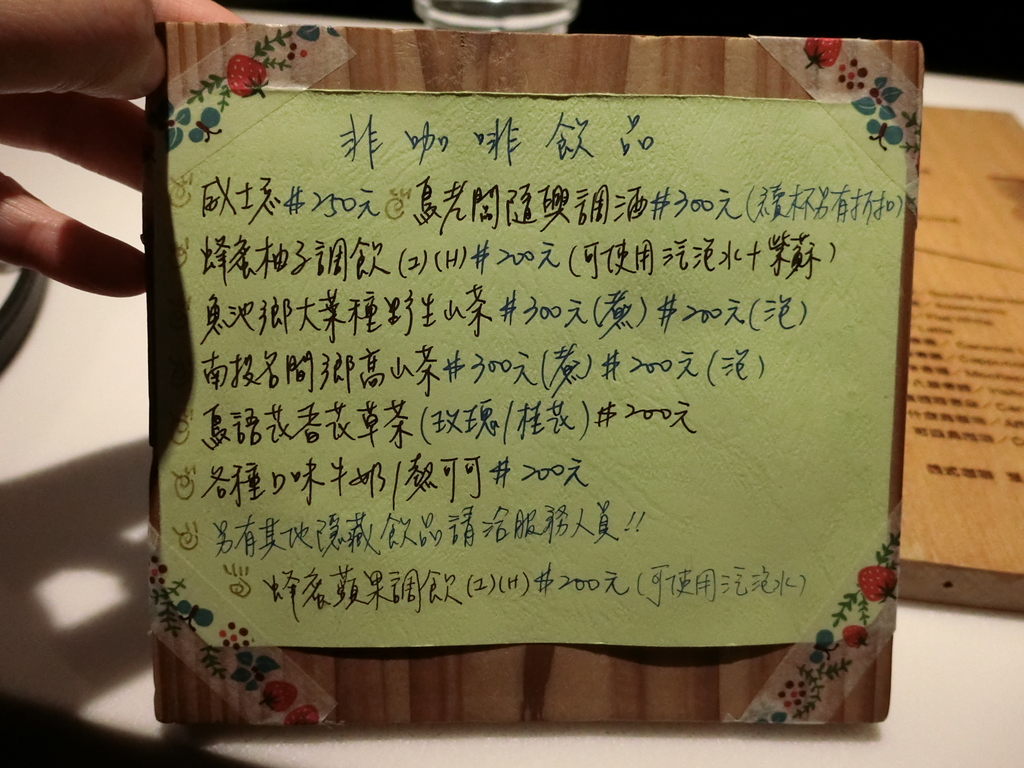 非咖啡飲品
威士忌#250元 鳥老闆隨興調酒#300元(續杯另有折扣)
蜂蜜柚子調飲(I)(H)#200元(可使用汽泡水+紫蘇)
魚池鄉大葉種野生山茶#300元(煮)#200元(泡)
南投名間鄉高山茶#300元(煮)#200元(泡)
鳥語花香花草茶(玫瑰/桂花)#200元
各種口味牛奶/熱可可#200元
另有其他隱藏飲品請洽服務人員!!
蜂蜜蘋果調飲(I)(H)#200元(可使用汽泡水)